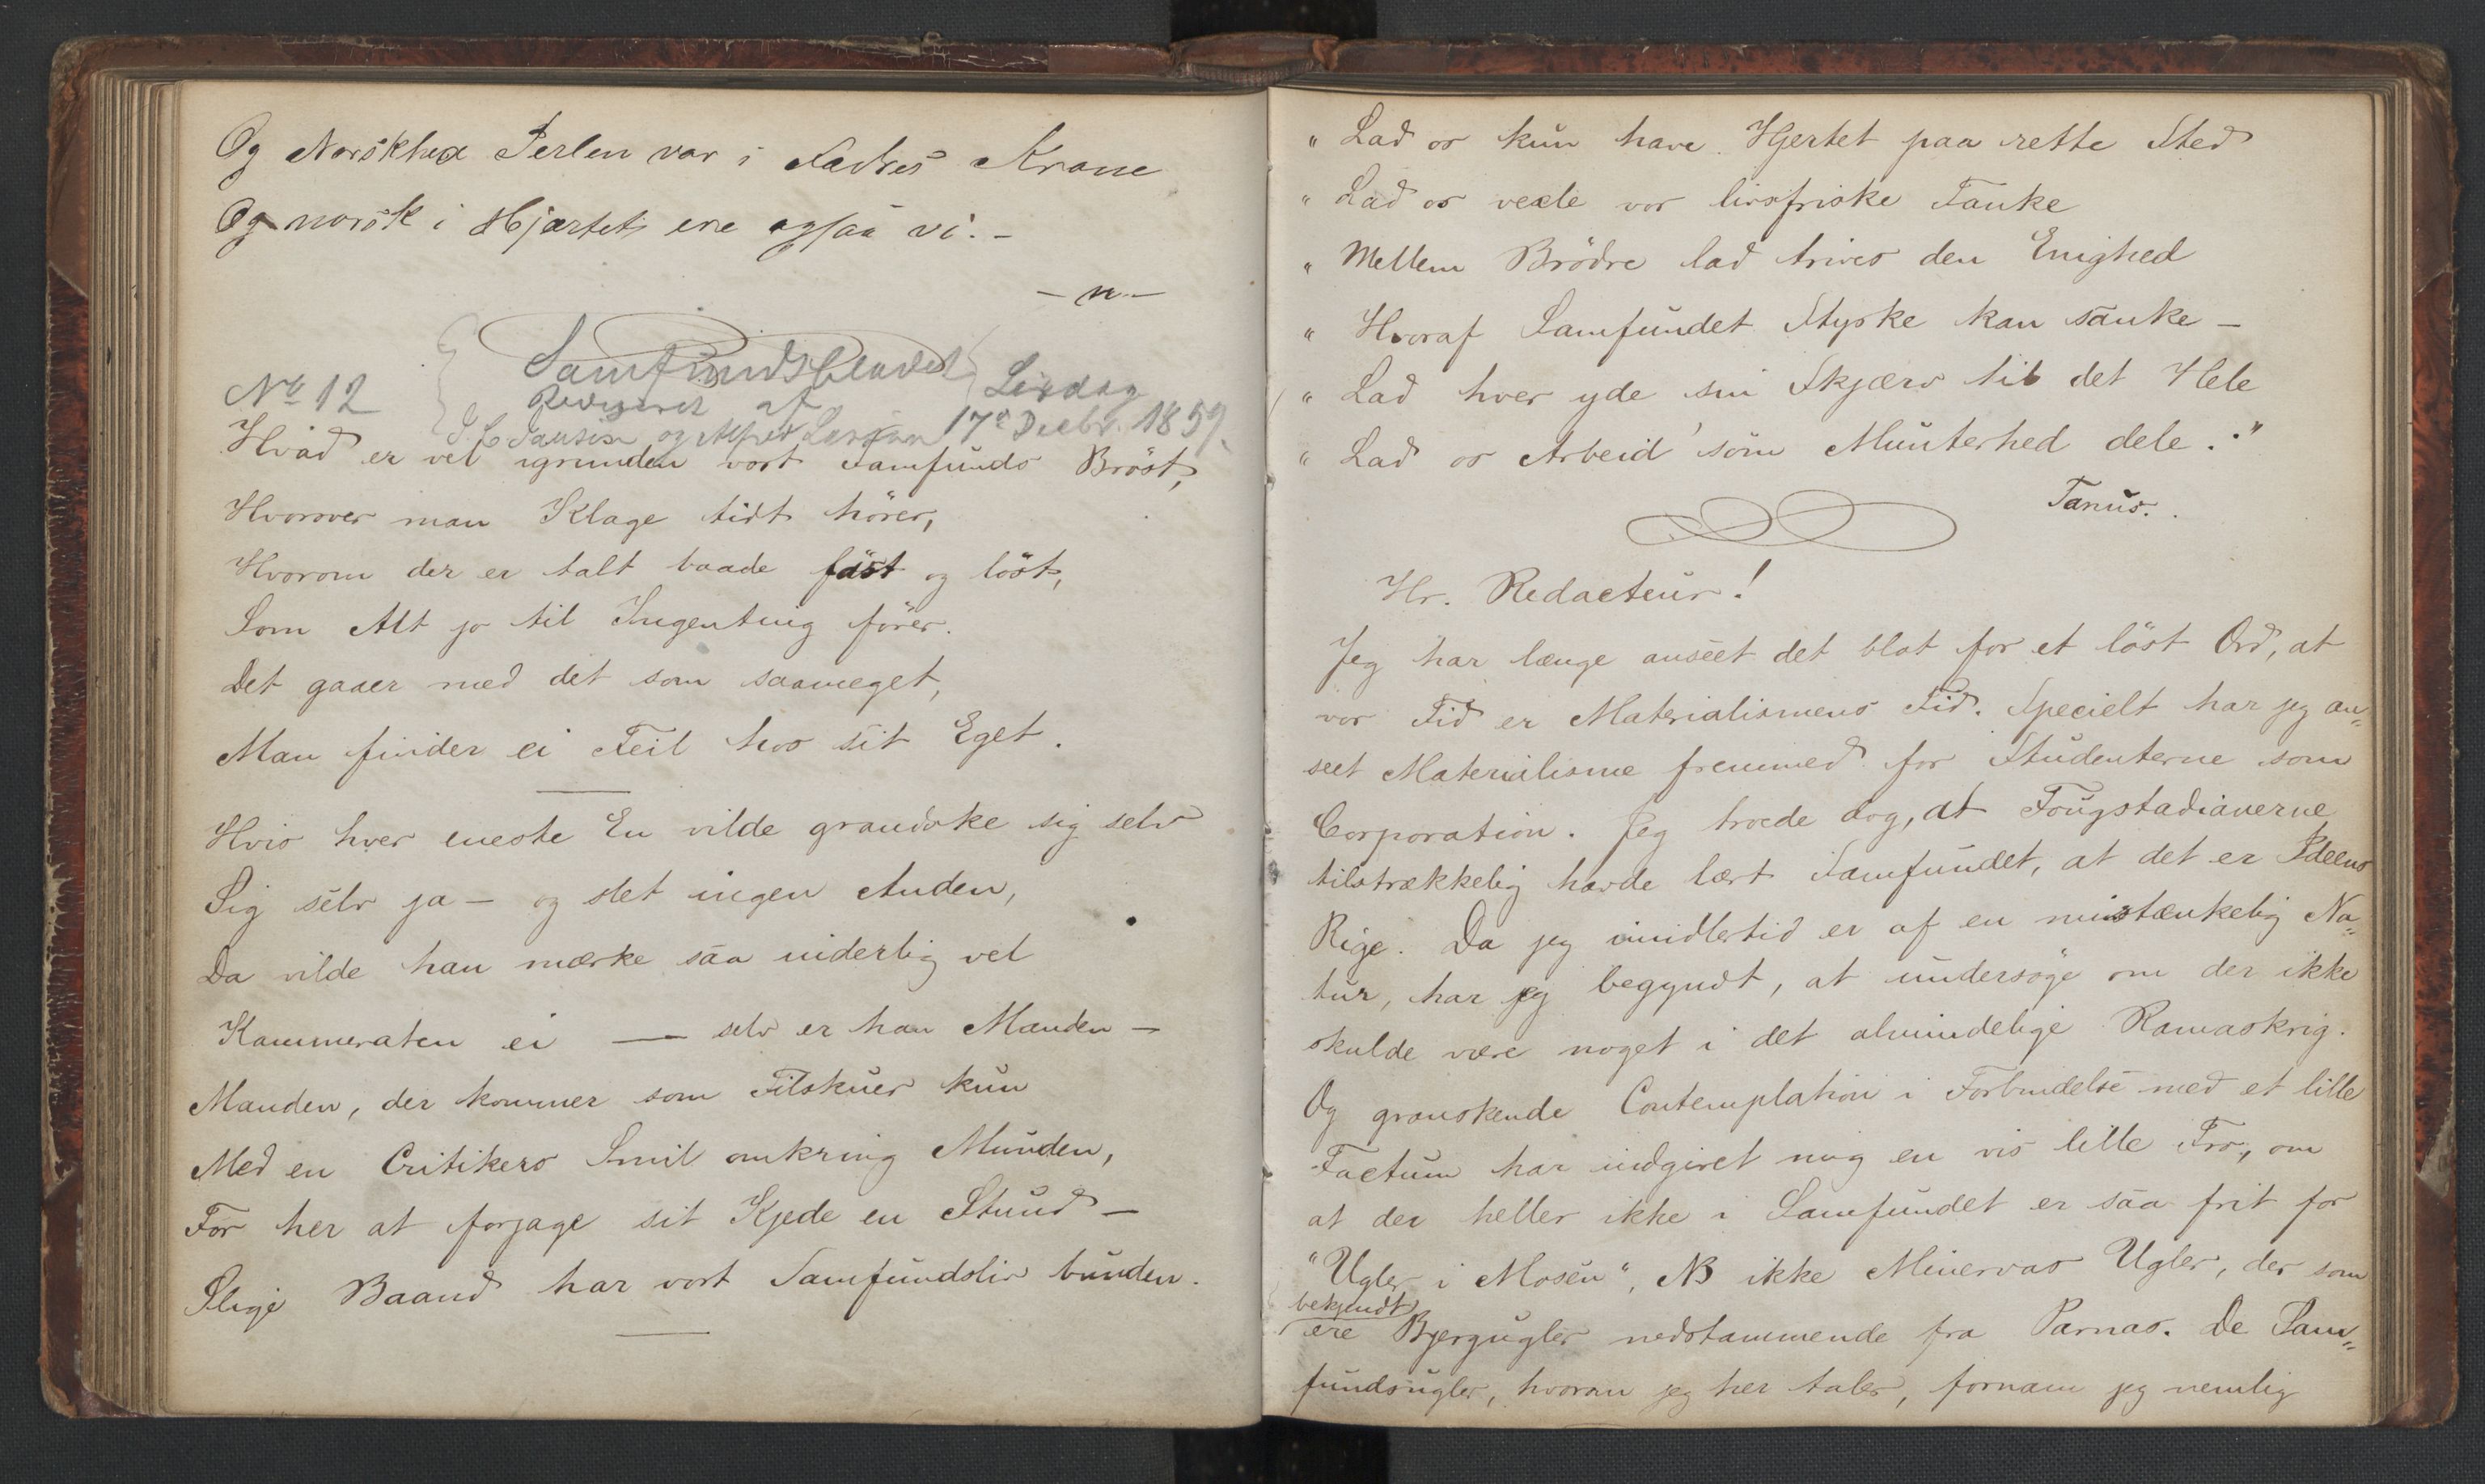 Og Norskhed Perlen var i Fædres Krone
Og norsk i Hjærtet ere ogsaa vi. –
– n –
Samfundsbladet
No 12
Redigeret af
Løverdag
17de Decbr. 1859.
Hvad er vel igrunden vort Samfunds Bröst,
Hvorover man Klage tidt hörer,
Hvorom der er talt baade fast og löst,
Som Alt jo til Ingenting förer.
Det gaaer med det som saameget,
Man finder ei Feil hos sit Eget.
Hvis hver eneste En vilde grandske sig selv
Sig selv ja – og slet ingen Anden,
Da vilde han mærke saa inderlig vel
Kammeraten ei — selv er han Manden –
Manden, der kommer som Tilskuer kun
Med en Critikers Smil omkring Munden,
For her at forjage sit Kjede en Stund –
Slige Baand har vort Samfundsliv bunden.
„ Lad os kun have Hjertet paa rette Sted
„ Lad os vexle vor livsfriske Tanke
„ Mellem Brödre lad trives den Enighed
„ Hvoraf Samfundet Styrke kan sanke –
„ Lad hver yde sin Skjærv til det Hele
„ Lad os Arbeid' som Munterhed dele."
Tanus.
Hr. Redacteur!
Jeg har længe anseet det blot for et löst Ord, at
vor Tid er Materialismens Tid. Specielt har jeg an„
seet Materialisme fremmed for Studenterne som
Corporation. Jeg troede dog, at Fougstadianerne
tilstrækkelig havde lært Samfundet, at det er Ideens
Rige. Da jeg imidlertid er af en mistænkelig Na„
tur, har jeg begyndt, at undersöge om der ikke
skulde være noget i det almindelige Ramaskrig.
Og granskende Contemplation i Forbindelse med et lille
Factum har indgivet mig en vis lille Tro, om
at der heller ikke i Samfundet er saa frit for
"Ugler i Mosen", NB ikke Minervas Ugler, der som
bekjendt
ere Bjergugler nedstammende fra Parnas. De Sam„
fundsugler, hvorom jeg her taler, fornam jeg nemlig